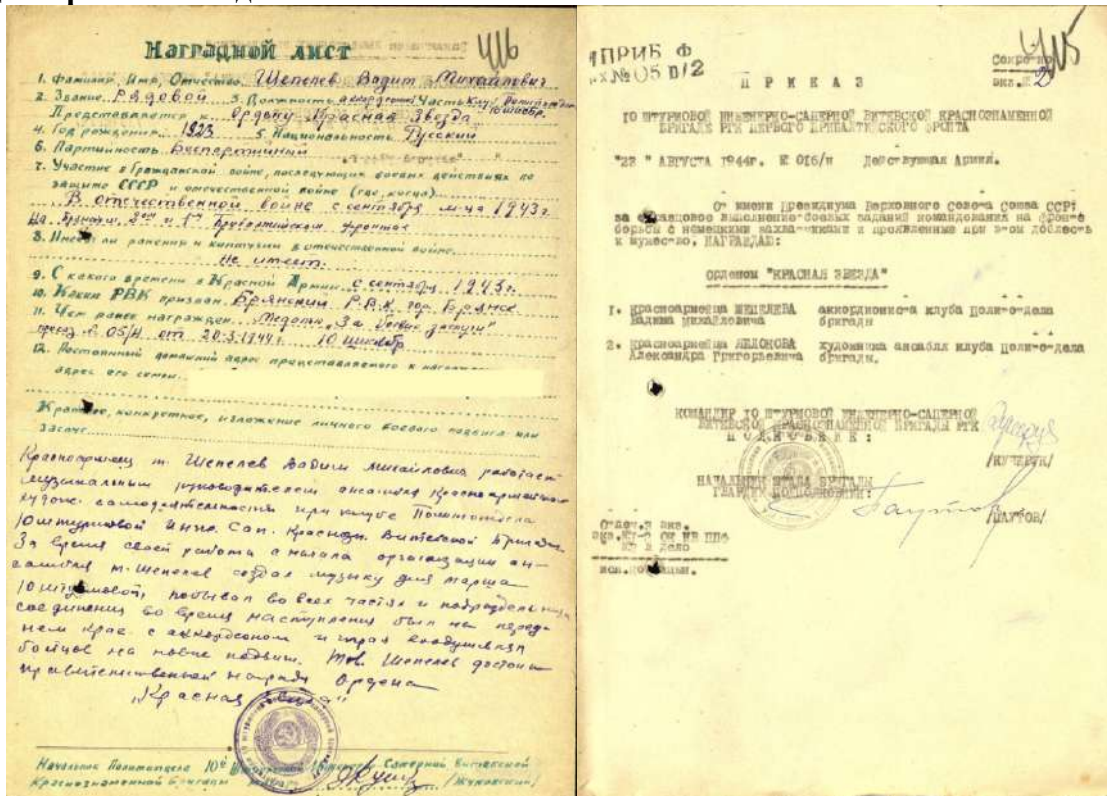 416
Наградной лист
1. Фамилия, Имя, Отчество Шепелев Вадим Михайлович
2. Звание Рядовой 3. Должность, Часть аккордеонист Клуб Политотдел
Представляется к Ордену Красная Звезда 10 шисбр.
4. Год рождения 1923 5. Национальность Русский
6. Партийность Беспартийный
7. Участие в Гражданской войне, последующих боевых действиях по
защите СССР и отечественной войне (где, когда)
В отечественной войне с сентября м-ца 1943 г.
На Брянском, 2ом и 1м Прибалтийском фронтах
8. Имеет ли ранения и контузии в отечественной войне
Не имеет.
9. С какого времени в Красной Армии с сентября 1943 г.
10. Каким РВК призван Брянский Р.В.К. гор. Брянск
11. Чем ранее награжден Медаль "За боевые заслуги"
приказ № 05/н от 20.3.1944 г. 10 шисбр
12. Постоянный домашний адрес представляемого к
адрес его семьи
Краткое, конкретное, изложение личного боевого подвига или
заслуг
Красноармеец т. Шепелев Вадим Михайлович работает
музыкальным руководителем ансамбля красноармейской
худож. самодеятельности при клубе Политотдела
10 штурмовой Инж. Сап. Краснозн. Витебской Бригады.
За время своей работы с начала организации ан-
самбля т. Шепелев создал музыку для марша
10 штурмовой, побывал во всех частях и подразделениях
соединения во время наступления был на перед-
нем крае с аккордеоном и играл воодушевляя
бойцов на новые подвиги. Тов. Шепелев достоин
правительственной награды Ордена
"Красная Звезда"
Начальник Политотдела 10й Штурмовой Инженерно Саперной Витебской
Краснознаменной бригады /Жуковский/
415
1ПРИБ Ф
вх№05 п/2
Секретно
экз.№ 2
П Р И К А З
10 ШТУРМОВОЙ ИНЖЕНЕРНО-САПЕРНОЙ ВИТЕБСКОЙ КРАСНОЗНАМЕННОЙ
БРИГАДЕ РГК ПЕРВОГО ПРИБАЛТИЙСКОГО ФРОНТА
"22" АВГУСТА 1944г. № 016/н Действующая Армия.
От имени Президиума Верховного Совета Союза ССР:
за образцовое выполнение боевых заданий командования на фронте
борьбы с немецкими захватчиками и проявленные при этом доблесть
и мужество, НАГРАЖДАЮ:
орденом "КРАСНАЯ ЗВЕЗДА"
1. Красноармейца ШЕПЕЛЕВА аккордиониста клуба Политотдела
Вадима Михайловича бригады
2. Красноармейца художника ансамбля клуба Политотдела
Александра Григорьевича бригады.
КОМАНДИР 10 ШТУРМОВОЙ ИНЖЕНЕРНО-САПЕРНОЙ
ВИТЕБСКОЙ КРАСНОЗНАМЕННОЙ БРИГАДЫ РГК
П О Л К О В Н И К :
/КУЧЕРУК/
НАЧАЛЬНИК ШТАБА БРИГАДЫ
ГВАРДИИ ПОДПОЛКОВНИК:
/ПАУТОВ/